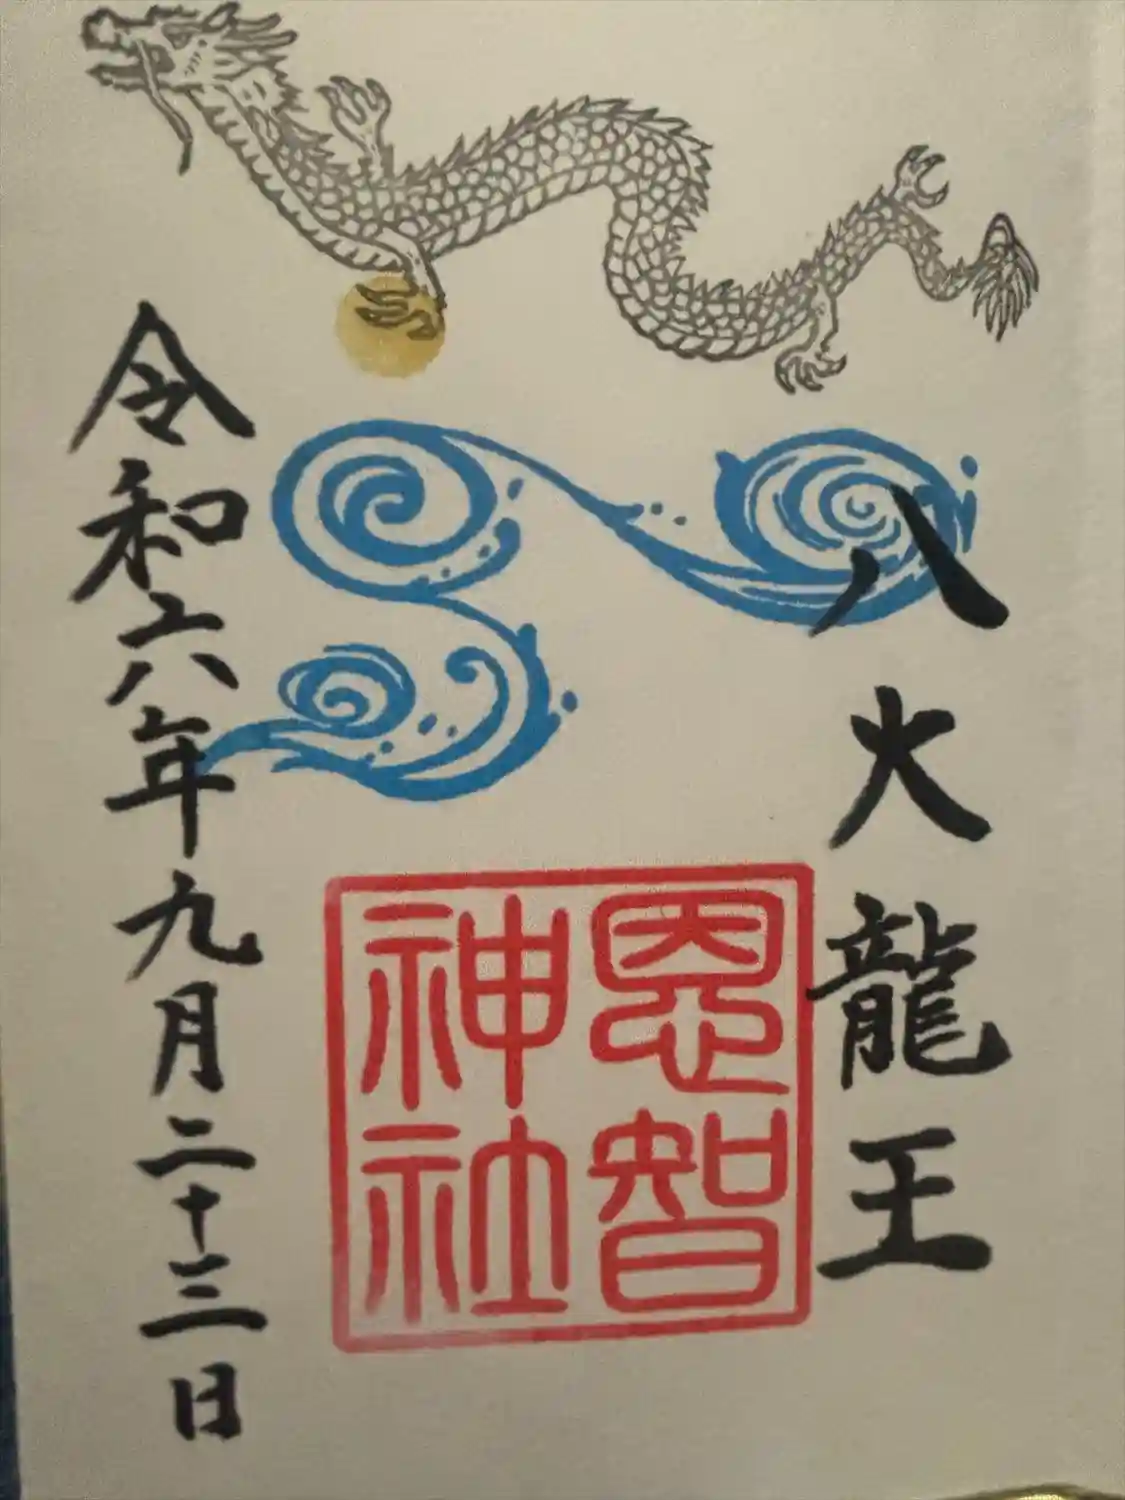 八火龍王
恩智
神社
令和六年九月二十三日